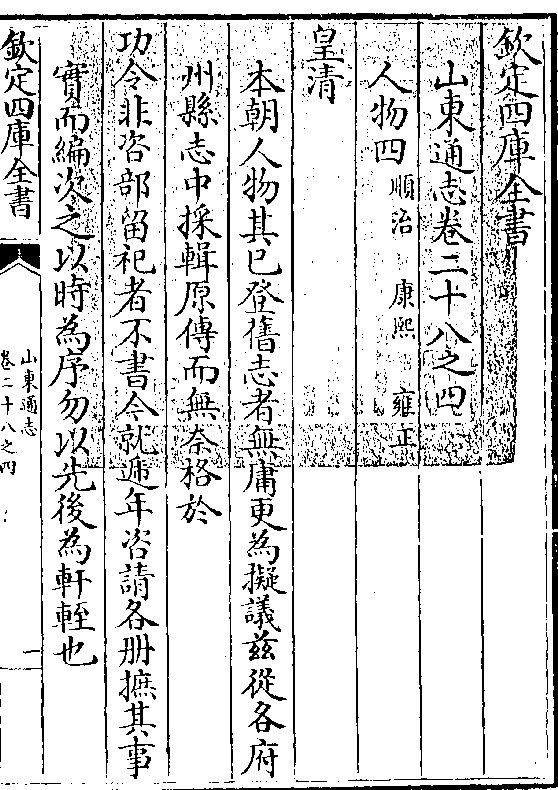 欽定四庫全書
山東通志卷二十八之四
人物四 順治 康熙 雍正
皇清
本朝人物其已登舊志者無庸更為擬議茲從各府
州縣志中採輯原傳而無奈格於
功令非咨部留祀者不書今就遞年咨請各册摭其事
實而編次之以時為序勿以先後為軒輊也
欽定四庫全書
山東通志
卷二十八之四
一